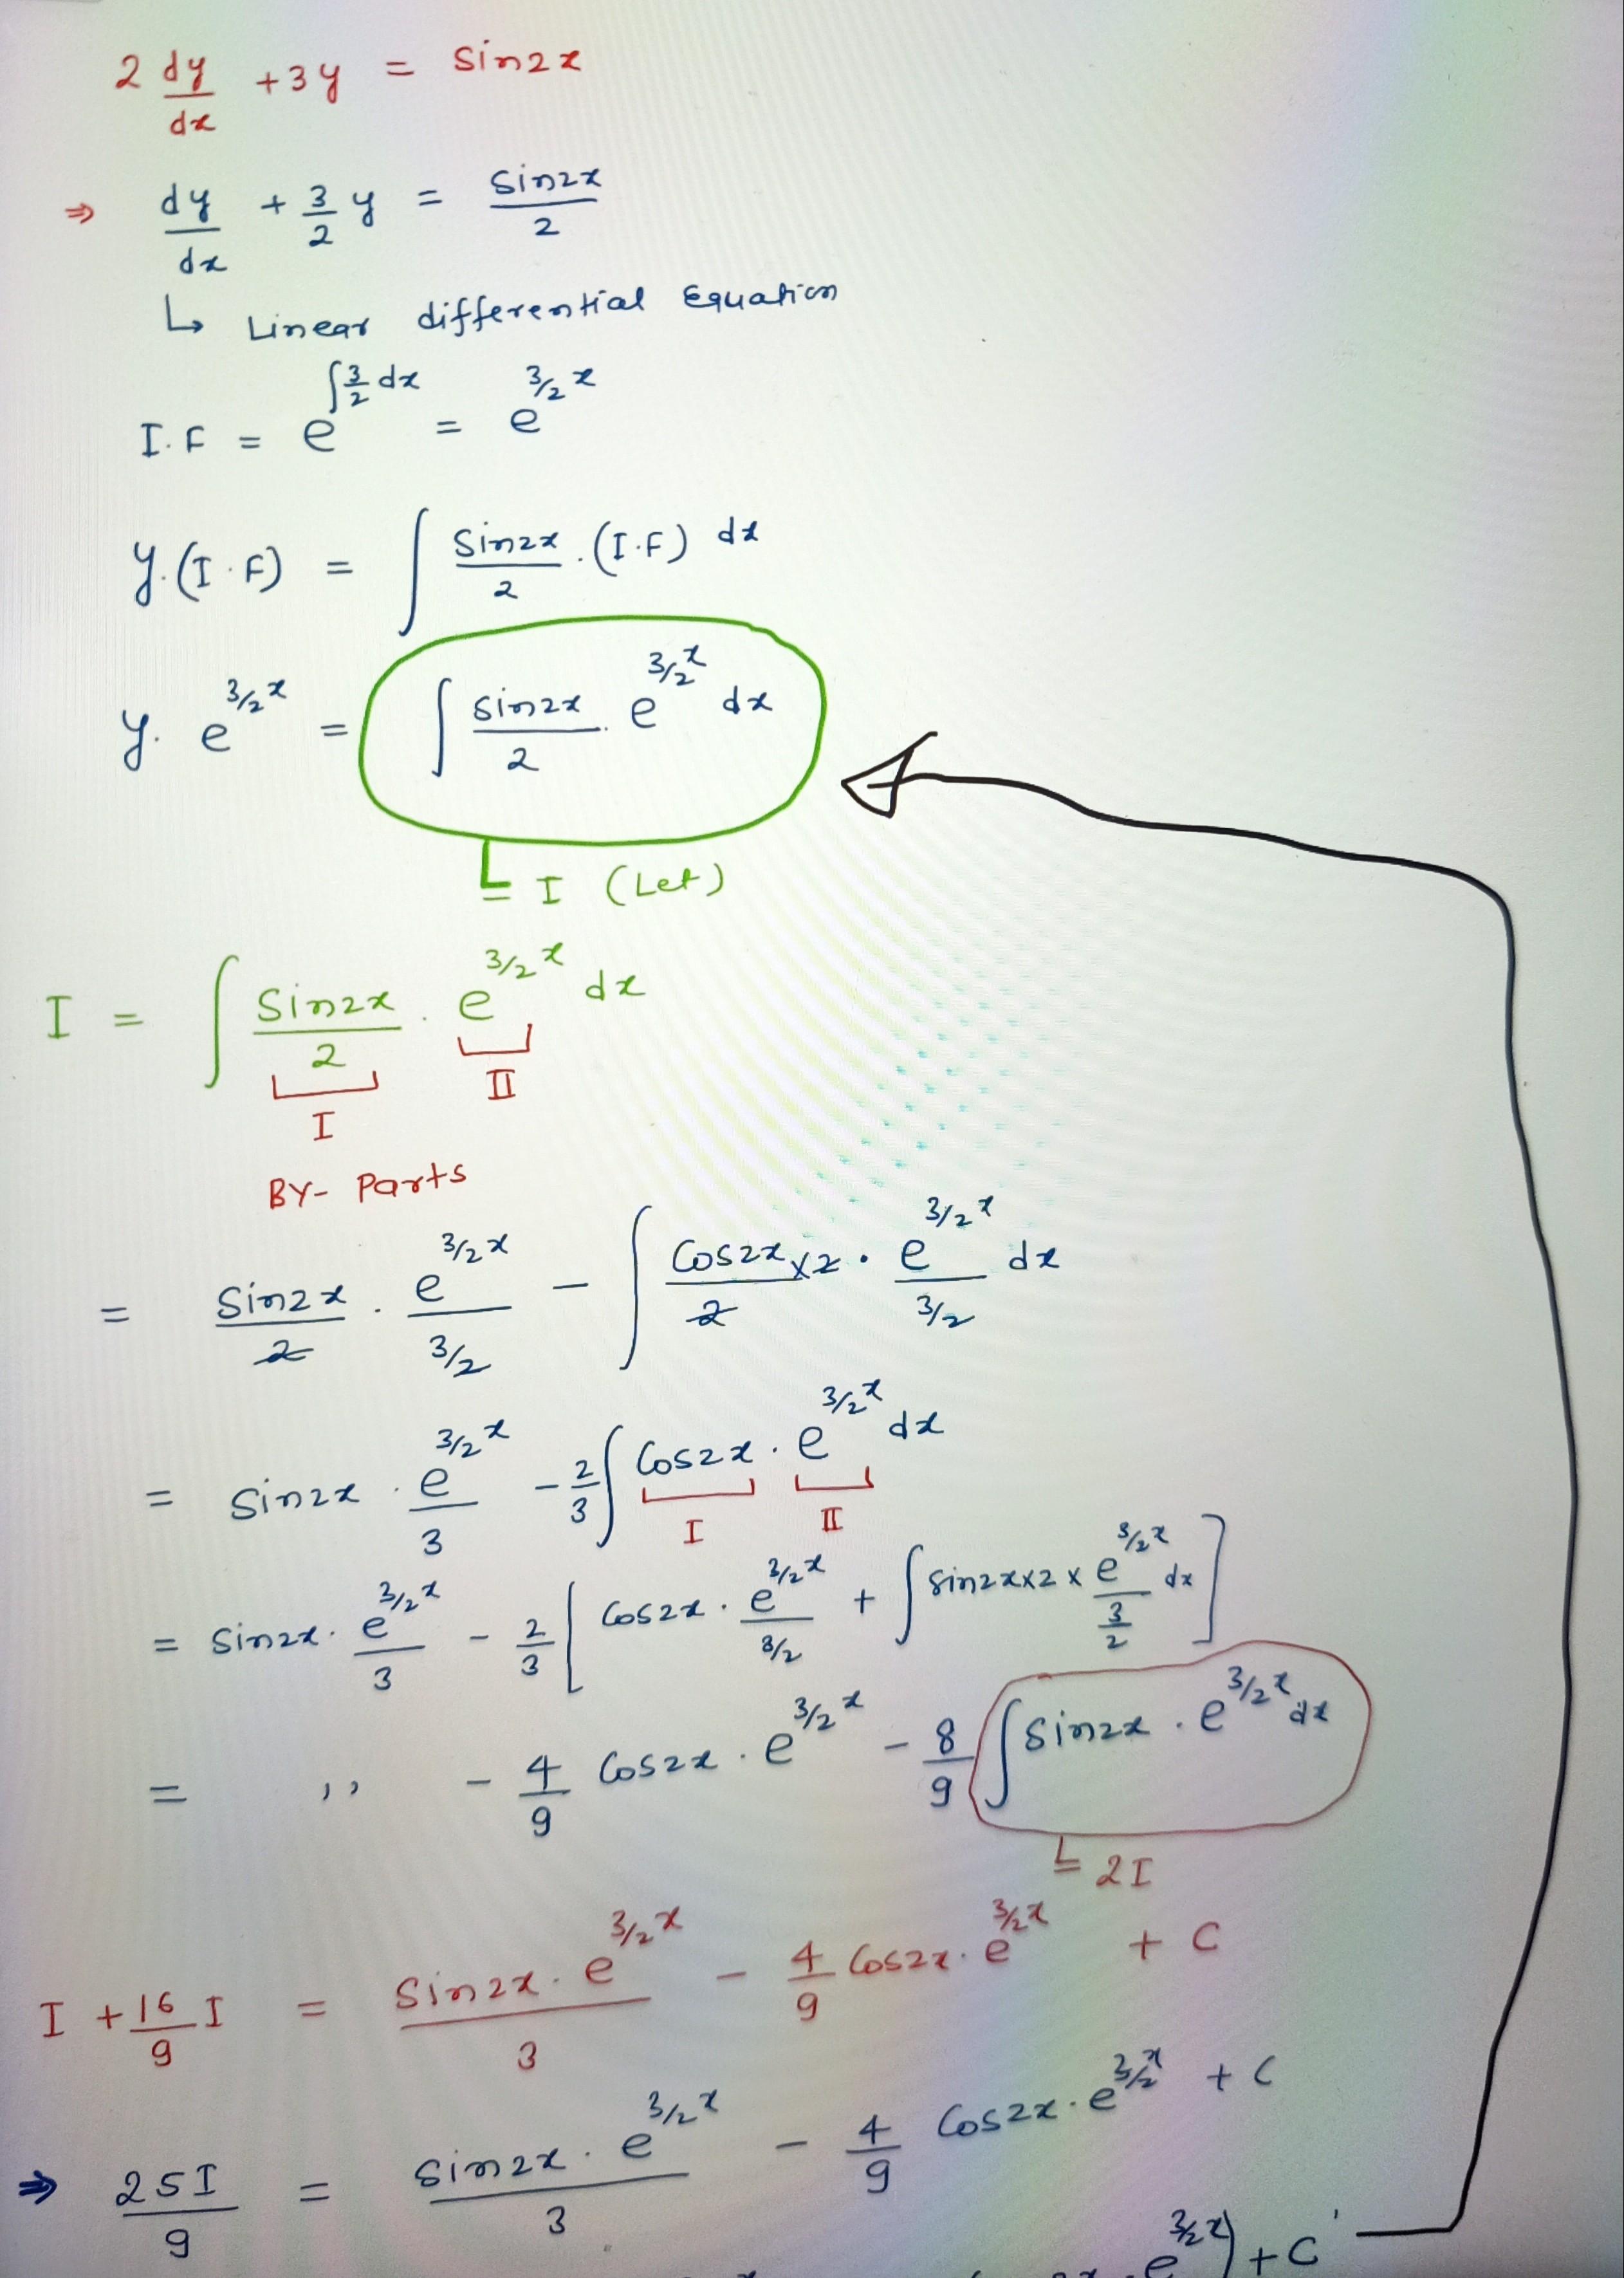 2 dy/dx + 3y = Sin2x
⇒ dy/dx + 3/2 y = Sin2x/2
↳ Linear differential Equation
I.F = e^∫3/2 dx = e^3/2 x
y.(I.F) = ∫ Sin2x/2 .(I.F) dx
y. e^3/2 x = ∫ sin2x/2 . e^3/2 x dx
= I (Let)
I = ∫ Sin2x/2 . e^3/2 x dx
I II
BY- Parts
= Sin2x/2 . e^3/2 x/3/2 - ∫ Cos2x×2/2 . e^3/2 x/3/2 dx
= Sin2x . e^3/2 x/3 - 2/3 ∫ Cos2x . e^3/2 x dx
I II
= Sin2x . e^3/2 x/3 - 2/3 [ Cos2x . e^3/2 x/3/2 + ∫ Sin2x×2 × e^3/2 x/3/2 dx ]
= ,, - 4/9 Cos2x . e^3/2 x - 8/9 ∫ Sin2x . e^3/2 x dx
= 2I
I + 16/9 I = Sin2x . e^3/2 x/3 - 4/9 Cos2x . e^3/2 x + C
⇒ 25I/9 = Sin2x . e^3/2 x/3 - 4/9 Cos2x . e^3/2 x + C
. e^3/2 x) + C'